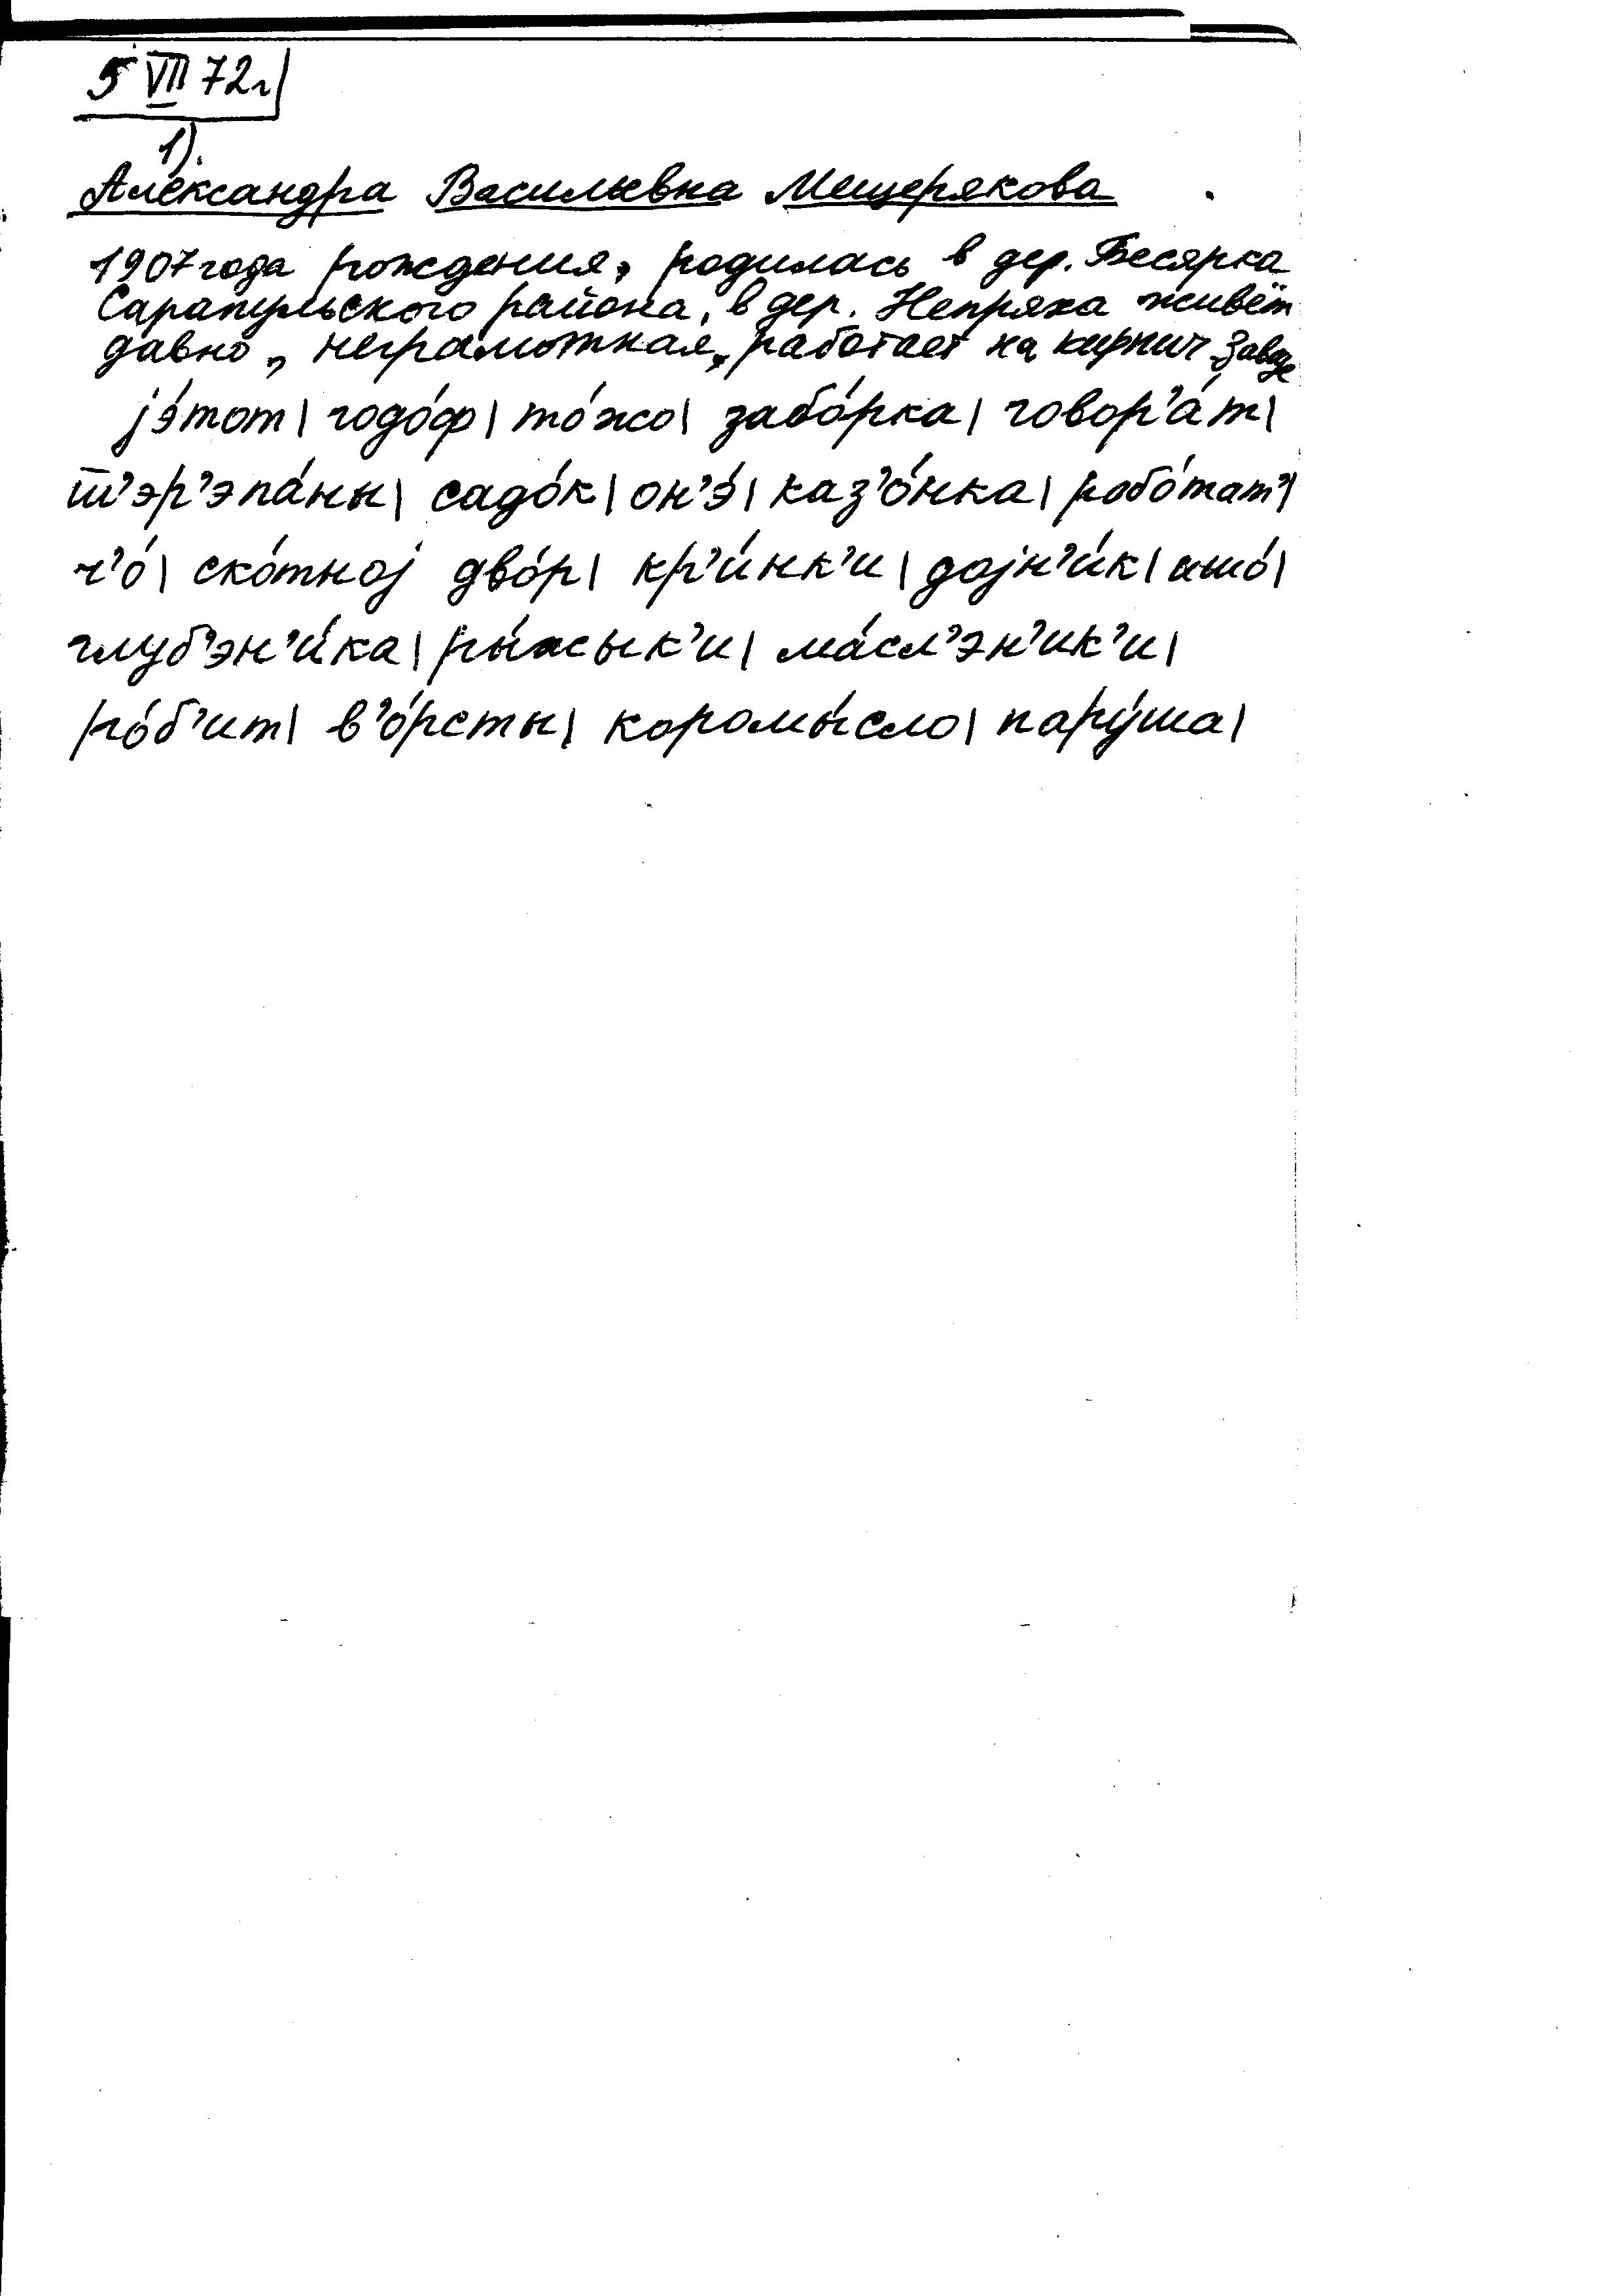 5 VII 72г
1).
Александра Васильевна Мещерякова
1907 года рождения, родилась в дер. Бесярка
Сарапульского района, в дер. Непряха живёт
давно, неграмотная, работает на кирпич. заводе
jэ́тот| годо́ф| то́жо| забо́рка| говор'а́т|
т'эр'эпа́ны| садо́к| он'э́| каз'о́нка| робо́тат'|
ч'о́| ско́тноj дво́р| кр'и́нк'и| доjн'и́к| ишо́|
глуб'эн'и́ка| ры́жык'и| ма́сл'эн'ик'и|
ро́б'ит| в'о́рсты| коромы́сло| пару́ша|